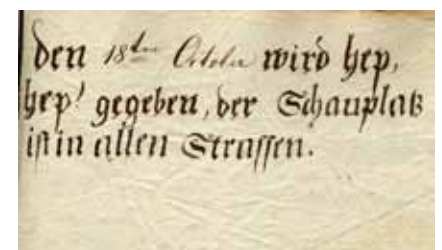 den 18ten October wird hep,
hep! gegeben, der Schauplatz
ist in allen Strassen.